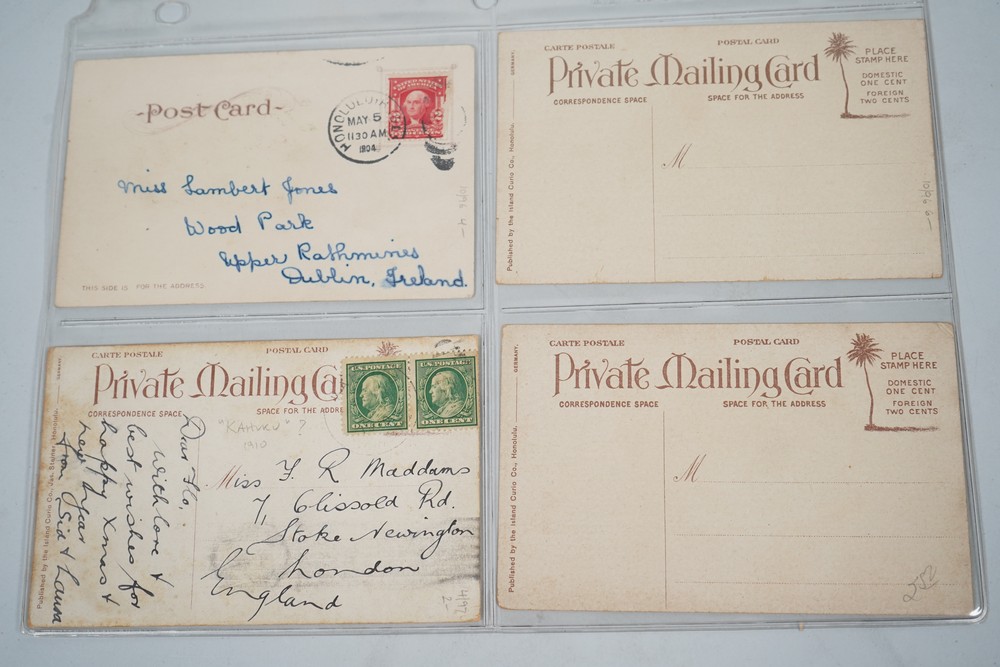 Post Card
HONOLULU
MAY 5
1130 AM
1904
UNITED STATES
OF AMERICA
Miss Lambert Jones
Wood Park
Upper Rathmines
Dublin, Ireland.
THIS SIDE IS FOR THE ADDRESS
10/96 4-
CARTE POSTALE
POSTAL CARD
Private Mailing Card
CORRESPONDENCE SPACE
SPACE FOR THE ADDRESS
PLACE
STAMP HERE
DOMESTIC
ONE CENT
FOREIGN
TWO CENTS
GERMANY.
Published by the Island Curio Co., Honolulu.
M
10/96 6-
CARTE POSTALE
POSTAL CARD
Private Mailing Ca
CORRESPONDENCE SPACE
SPACE FOR THE ADDRE
U.S. POSTAGE
ONE CENT
U.S. POSTAGE
ONE CENT
GERMANY.
Published by the Island Curio Co., Jas. Steiner, Honolulu.
"KAHUKU" ?
1910
Dear Flo,
With love &
best wishes for
happy Xmas &
New Year
from Sid & Laura
Miss F. R Maddams
7, Clissold Rd.
Stoke Newington
London
England
4/97
2-
CARTE POSTALE
POSTAL CARD
Private Mailing Card
CORRESPONDENCE SPACE
SPACE FOR THE ADDRESS
PLACE
STAMP HERE
DOMESTIC
ONE CENT
FOREIGN
TWO CENTS
GERMANY.
Published by the Island Curio Co., Honolulu.
M
252